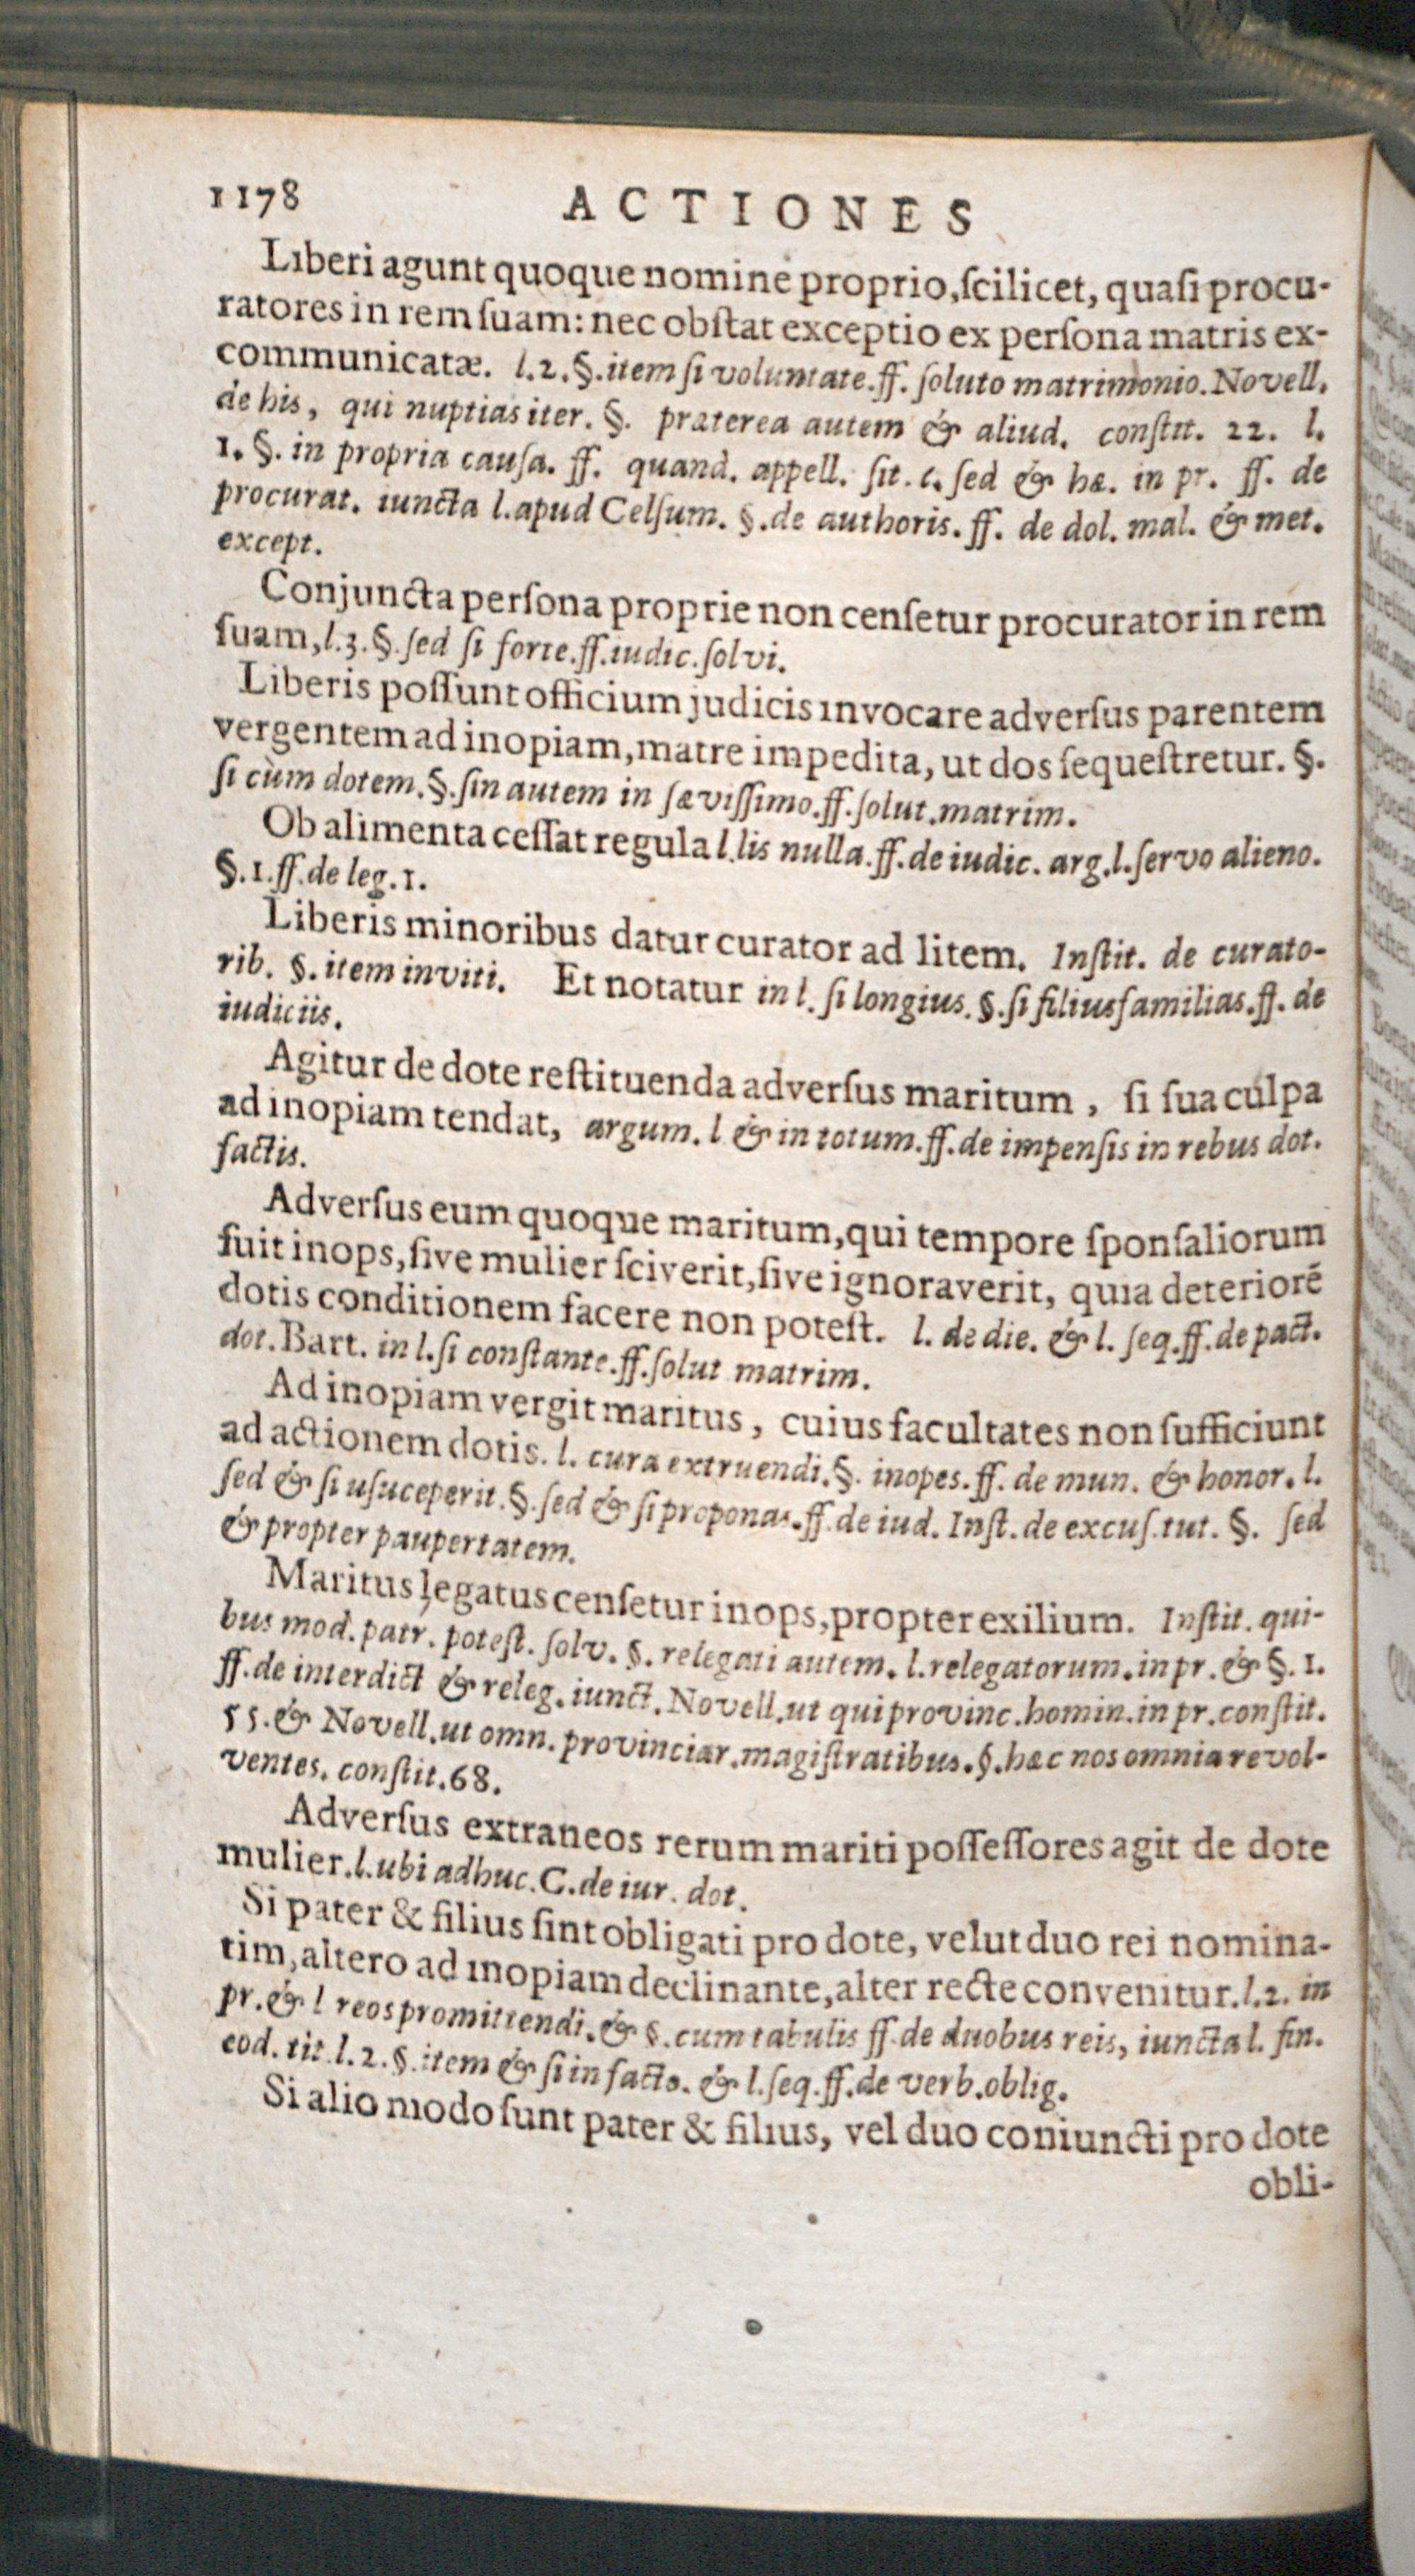 1178 ACTIONES
Liberi agunt quoque nomine proprio, ſcilicet, quaſi procu-
ratores in rem ſuam: nec obſtat exceptio ex perſona matris ex-
communicatæ. l. 2. §. item ſi voluntate. ff. ſoluto matrimonio. Novell.
de his, qui nuptias iter. §. præterea autem & aliud. conſtit. 22. l.
1. §. in propria cauſa. ff. quand. appell. ſit. l. ſed & hæ. in pr. ff. de
procurat. iuncta l. apud Celſum. §. de authoris. ff. de dol. mal. & met.
except.
Conjuncta perſona proprie non cenſetur procurator in rem
ſuam, l. 3. §. ſed ſi forte. ff. iudic. ſolvi.
Liberis poſſunt officium judicis invocare adverſus parentem
vergentem ad inopiam, matre impedita, ut dos ſequeſtretur. §.
ſi cùm dotem. §. ſin autem in ſæviſſimo. ff. ſolut. matrim.
Ob alimenta ceſſat regula l. lis nulla. ff. de iudic. arg. l. ſervo alieno.
§. 1. ff. de leg. 1.
Liberis minoribus datur curator ad litem. Inſtit. de curato-
rib. §. item inviti. Et notatur in l. ſi longius. §. ſi filiusfamilias. ff. de
iudiciis.
Agitur de dote reſtituenda adverſus maritum, ſi ſua culpa
ad inopiam tendat, argum. l & in totum. ff. de impenſis in rebus dot.
factis.
Adverſus eum quoque maritum, qui tempore ſponſaliorum
fuit inops, ſive mulier ſciverit, ſive ignoraverit, quia deterioré
dotis conditionem facere non poteſt. l. de die. & l. ſeq. ff. de pact.
dot. Bart. in l. ſi conſtante. ff. ſolut matrim.
Ad inopiam vergit maritus, cuius facultates non ſufficiunt
ad actionem dotis. l. cura extruendi. §. inopes. ff. de mun. & honor. l.
ſed & ſi uſuceperit. §. ſed & ſi proponas. ff. de iud. Inſt. de excuſ. tut. §. ſed
& propter paupertatem.
Maritus legatus cenſetur inops, propter exilium. Inſtit. qui-
bus mod. patr. poteſt. ſolv. §. relegati autem. l. relegatorum. in pr. & §. 1.
ff. de interdict & releg. iunct. Novell. ut qui provinc. homin. in pr. conſtit.
55. & Novell. ut omn. provinciar. magiſtratibus. §. hæc nos omnia revol-
ventes. conſtit. 68.
Adverſus extraneos rerum mariti poſſeſſores agit de dote
mulier. l. ubi adhuc. C. de iur. dot.
Si pater & filius ſint obligati pro dote, velut duo rei nomina-
tim, altero ad inopiam declinante, alter recte convenitur. l. 2. in
pr. & l reos promittendi. & §. cum tabulis ff. de duobus reis, iuncta l. fin.
eod. tit. l. 2. §. item & ſi in facto. & l. ſeq. ff. de verb. oblig.
Si alio modo ſunt pater & filius, vel duo coniuncti pro dote
obli-